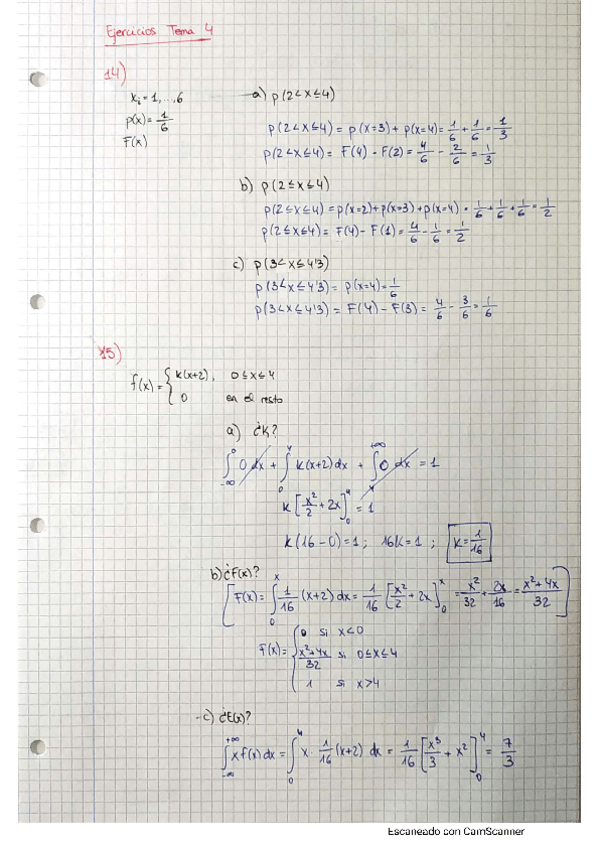 Ejercicios Tema 4
14)
xi = 1, ..., 6
p(x) = 1/6
F(x)
a) p(2<x≤4)
p(2<x≤4) = p(x=3) + p(x=4) = 1/6 + 1/6 = 1/3
p(2<x≤4) = F(4) - F(2) = 4/6 - 2/6 = 1/3
b) p(2≤x≤4)
p(2≤x≤4) = p(x=2) + p(x=3) + p(x=4) = 1/6 + 1/6 + 1/6 = 1/2
p(2≤x≤4) = F(4) - F(1) = 4/6 - 1/6 = 1/2
c) p(3<x≤4'3)
p(3<x≤4'3) = p(x=4) = 1/6
p(3<x≤4'3) = F(4) - F(3) = 4/6 - 3/6 = 1/6
15)
f(x) = { k(x+2), 0≤x≤4
0 en el resto
a) ¿K?
∫_{-∞}^{0} 0 dx + ∫_{0}^{4} k(x+2) dx + ∫_{4}^{+∞} 0 dx = 1
k [x²/2 + 2x]_{0}^{4} = 1
k(16-0) = 1 ; 16k = 1 ; k = 1/16
b) ¿F(x)?
[F(x) = ∫_{0}^{x} 1/16 (x+2) dx = 1/16 [x²/2 + 2x]_{0}^{x} = x²/32 + 2x/16 = x²+4x/32]
F(x) = { 0 si x<0
x²+4x/32 si 0≤x≤4
1 si x>4
-c) ¿E(x)?
∫_{-∞}^{+∞} x f(x) dx = ∫_{0}^{4} x · 1/16 (x+2) dx = 1/16 [x³/3 + x²]_{0}^{4} = 7/3
Escaneado con CamScanner